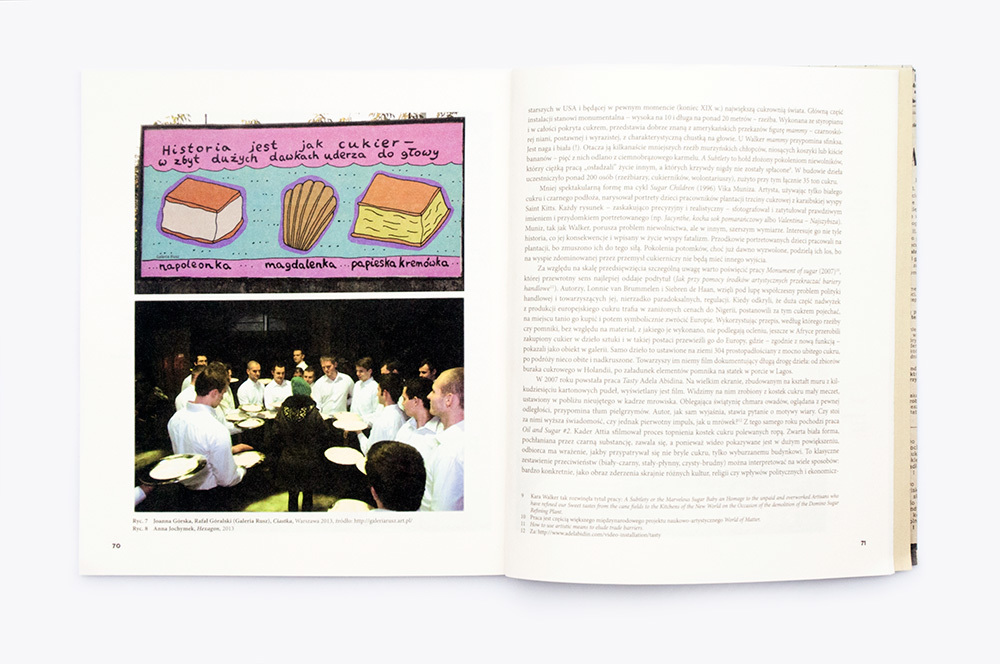 Historia jest jak cukier –
w zbyt dużych dawkach uderza do głowy
napoleonka ... magdalenka ... papieska kremówka
Ryc. 7 Joanna Górska, Rafał Góralski (Galeria Rusz), Ciastka, Warszawa 2013, źródło: http://galeriarusz.art.pl/
Ryc. 8 Anna Jochymek, Hexagon, 2013
70
starszych w USA i będącej w pewnym momencie (koniec XIX w.) największą cukrownią świata. Główną część
instalacji stanowi monumentalna – wysoka na 10 i długa na ponad 20 metrów – rzeźba. Wykonana ze styropianu
i w całości pokryta cukrem, przedstawia dobrze znaną z amerykańskich przekazów figurę mammy – czarnoskó-
rej niani, postawnej i wyrazistej, z charakterystyczną chustką na głowie. U Walker mammy przypomina sfinksa.
Jest naga i biała (!). Otacza ją kilkanaście mniejszych rzeźb murzyńskich chłopców, niosących koszyki lub kiście
bananów – pięć z nich odlano z ciemnobrązowego karmelu. A Subtlety to hołd złożony pokoleniom niewolników,
którzy ciężką pracą „osładzali” życie innym, a których krzywdy nigdy nie zostały spłacone⁹. W budowie dzieła
uczestniczyło ponad 200 osób (rzeźbiarzy, cukierników, wolontariuszy), zużyto przy tym łącznie 35 ton cukru.
Mniej spektakularną formę ma cykl Sugar Children (1996) Vika Muniza. Artysta, używając tylko białego
cukru i czarnego podłoża, narysował portrety dzieci pracowników plantacji trzciny cukrowej z karaibskiej wyspy
Saint Kitts. Każdy rysunek – zaskakująco precyzyjny i realistyczny – sfotografował i zatytułował prawdziwym
imieniem i przydomkiem portretowanego (np. Jacynthe, kocha sok pomarańczowy albo Valentina – Najszybsza).
Muniz, tak jak Walker, porusza problem niewolnictwa, ale w innym, szerszym wymiarze. Interesuje go nie tyle
historia, co jej konsekwencje i wpisany w życie wyspy fatalizm. Przodkowie portretowanych dzieci pracowali na
plantacji, bo zmuszono ich do tego siłą. Pokolenia potomków, choć już dawno wyzwolone, podzielą ich los, bo
na wyspie zdominowanej przez przemysł cukierniczy nie będą mieć innego wyjścia.
Za względu na skalę przedsięwzięcia szczególną uwagę warto poświęcić pracy Monument of sugar (2007)¹⁰,
której przewrotny sens najlepiej oddaje podtytuł (Jak przy pomocy środków artystycznych przekraczać bariery
handlowe¹¹). Autorzy, Lonnie van Brummelen i Siebren de Haan, wzięli pod lupę współczesny problem polityki
handlowej i towarzyszących jej, nierzadko paradoksalnych, regulacji. Kiedy odkryli, że duża część nadwyżek
z produkcji europejskiego cukru trafia w zaniżonych cenach do Nigerii, postanowili za tym cukrem pojechać,
na miejscu tanio go kupić i potem symbolicznie zwrócić Europie. Wykorzystując przepis, według którego rzeźby
czy pomniki, bez względu na materiał, z jakiego je wykonano, nie podlegają ocleniu, jeszcze w Afryce przerobili
zakupiony cukier w dzieło sztuki i w takiej postaci przewieźli go do Europy, gdzie – zgodnie z nową funkcją –
pokazali jako obiekt w galerii. Samo dzieło to ustawione na ziemi 304 prostopadłościany z mocno ubitego cukru,
po podróży nieco obite i nadkruszone. Towarzyszy im niemy film dokumentujący długą drogę dzieła: od zbiorów
buraka cukrowego w Holandii, po załadunek elementów pomnika na statek w porcie w Lagos.
W 2007 roku powstała praca Tasty Adela Abdina. Na wielkim ekranie, zbudowanym na kształt muru z kil-
kudziesięciu kartonowych pudeł, wyświetlany jest film. Widzimy na nim zrobiony z kostek cukru mały meczet,
ustawiony w pobliżu nieujętego w kadrze mrowiska. Oblegająca świątynię chmara owadów, oglądana z pewnej
odległości, przypomina tłum pielgrzymów. Autor, jak sam wyjaśnia, stawia pytanie o motywy wiary. Czy stoi
za nimi wyższa świadomość, czy jednak pierwotny impuls, jak u mrówek?¹² Z tego samego roku pochodzi praca
Oil and Sugar #2. Kader Attia sfilmował proces topnienia kostek cukru polewanych ropą. Zwarta biała forma,
pochłaniana przez czarną substancję, zawala się, a ponieważ wideo pokazywane jest w dużym powiększeniu,
odbiorca ma wrażenie, jakby przypatrywał się nie bryle cukru, tylko wyburzanemu budynkowi. To klasyczne
zestawienie przeciwieństw (biały-czarny, stały-płynny, czysty-brudny) można interpretować na wiele sposobów:
bardzo konkretnie, jako obraz zderzenia skrajnie różnych kultur, religii czy wpływów politycznych i ekonomicz-
9 Kara Walker tak rozwinęła tytuł pracy: A Subtlety or the Marvelous Sugar Baby an Homage to the unpaid and overworked Artisans who
have refined our Sweet tastes from the cane fields to the Kitchens of the New World on the Occasion of the demolition of the Domino Sugar
Refining Plant.
10 Praca jest częścią większego międzynarodowego projektu naukowo-artystycznego World of Matter.
11 How to use artistic means to elude trade barriers.
12 Za: http://www.adelabidin.com/video-installation/tasty
71